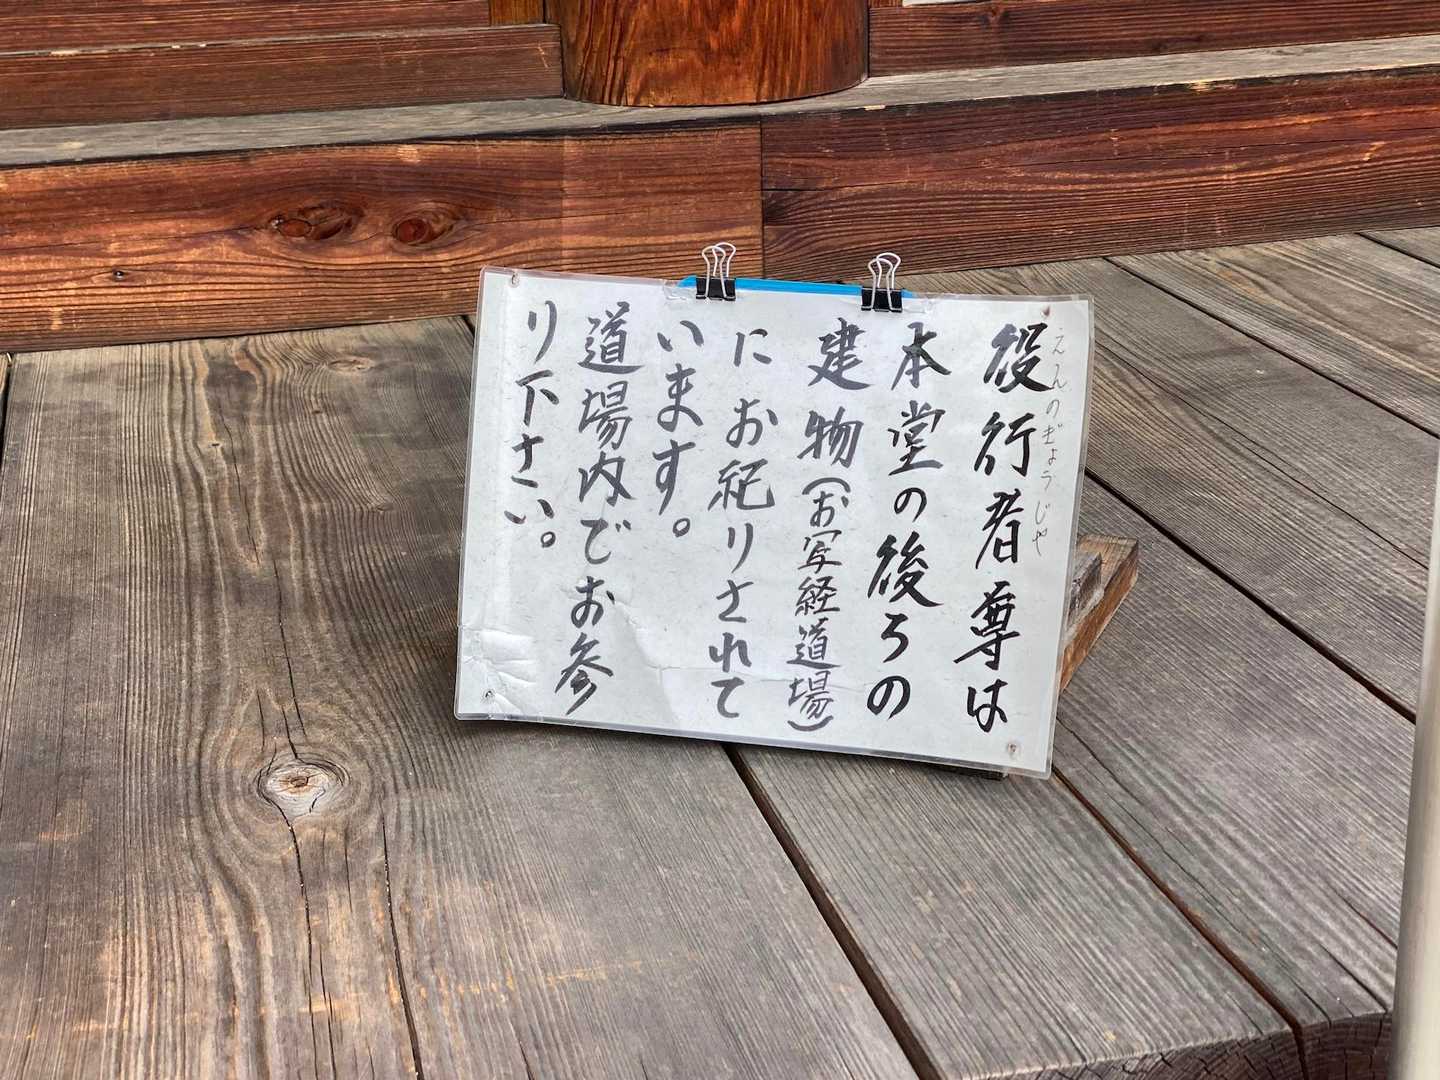 役行者尊は
えんのぎょうじゃ
本堂の後ろの
建物(お写経道場)
にお祀りされて
います。
道場内でお参
り下さい。